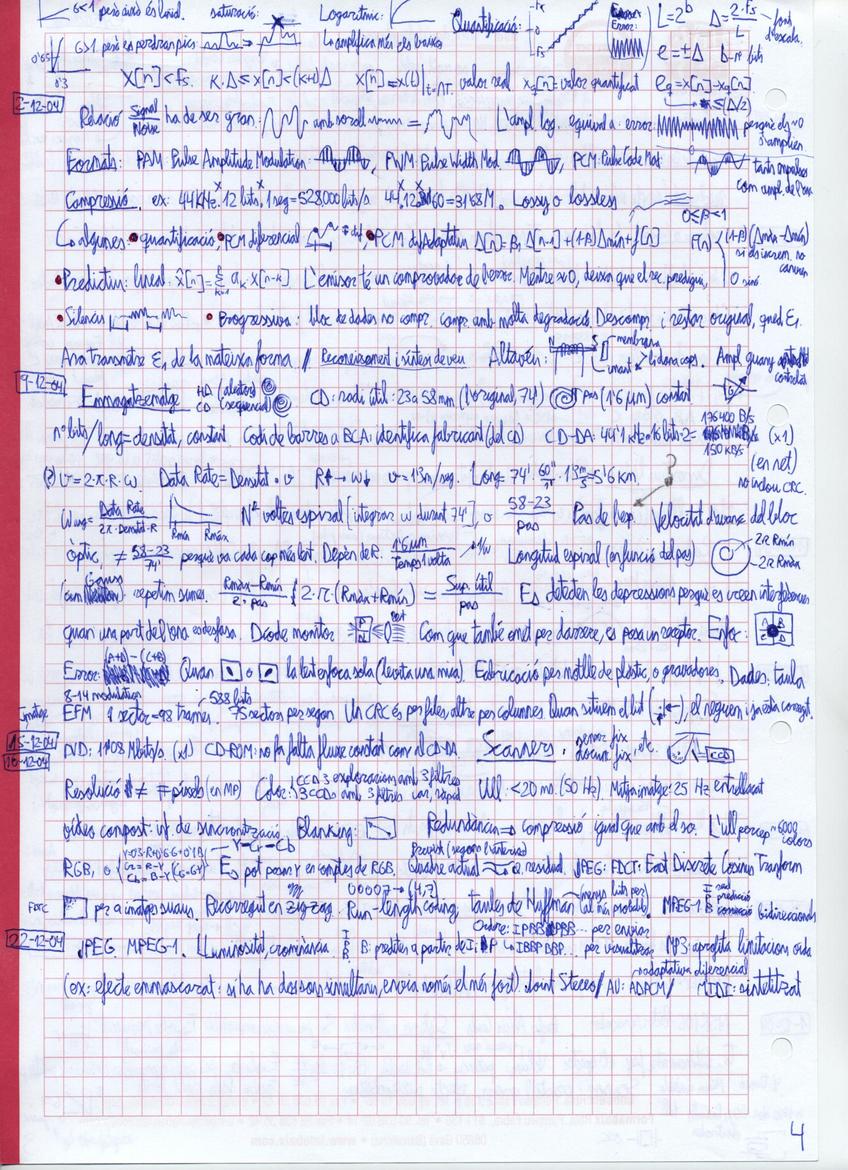 G<1 però això és lineal. saturació: Logarítmic: Quantificació: Fs -Fs Error: L=2^b Δ=2·Fs/L fons d'escala.
G>1 però es perdran pics: Lo amplifica més els baixos e=±Δ b=nº bits
0'3
X[n]<fs. K·Δ≤x[n]<(K+1)Δ x[n]=x(t)|t=nT. valor real xq[n]=valor quantificat eq=x[n]-xq[n] ≤(Δ/2)
2-12-04
Relació Signal/Noise ha de ser gran: amb soroll = L'ampl log. equival a: error: perquè els ≈0 s'amplien
Formats: PAM: Pulse Amplitude Modulation: , PWM: Pulse Width Mod. , PCM: Pulse Code Mod: tants impulsos com ampl de l'ona
Compressió. ex: 44KHz·12 bits·1 seg=528.000 bits/s 44·12·60=31'68M. Lossy o lossless
0<β<1
algunes: • quantificació, • PCM diferencial • PCM dif Adaptatiu Δ[n]=β·Δ[n-1]+(1-β)Δmin+f[n] F(n) (1-β)(Δmàx-Δmín)
0 sinó
• Predictiu: lineal: x̂[n]=Σ ak x[n-k] L'emisor té un comprovador de l'error. Mentre ≈0, deixa que el rec. predigui,
• Silencis • Progressiva: bloc de dades no compr. compr. amb molta degradació. Descompr. i restar original, qued E1.
Ara transmetre E1 de la mateixa forma // Reconeixement i síntesi de veu Altaveu: N S membrana imant bobina caps. Ampl guany controlat
9-12-04
Emmagatzematge HD (aleatori) CD (seqüencial) CD: radi útil: 23 a 58mm (l'original, 74') Pas (1'6 μm) constant
nº bits/long=densitat, constant Codi de barres a BCA: identifica fabricant (del CD) CD-DA: 44'1 KHz·16 bits·2= 176400 B/s (x1)
150 KB/s (en net)
no inclou CRC.
(?) v=2·π·R·ω. Data Rate=Densitat·v R↑→ω↓ v=1'3m/seg. Long=74'·60"/1'·1'3m/s=5'6 km. ?
ωang=Data Rate/2π·Densitat·R Rmín Rmàx Nº voltes espiral [integrar ω durant 74'], o 58-23/pas Pas de l'esp. Velocitat d'avanç del bloc
Òptic, ≠ 58-23/74' perquè va cada cop més lent. Depèn de R. 1'6 μm/temps 1 volta Longitud espiral (en funció del pas) 2π Rmín 2π Rmàx
com Gauss: repetim sumes. Rmàx-Rmín/2·pas {2·π·(Rmàx+Rmín) = Sup. útil/pas Es detecten les depressions perquè es creen interferències
quan una part de l'ona es desfasa. Díode monitor P N Com que també emet per darrere, es posa un receptor. Enfoc: A B C D
Error: (A+D)-(C+B) Quan o la lent enfoca sola (levita una mica) Fabricació per motlle de plàstic, o gravadores. Dades: taula
8-14 modulation 588 bits
Imatge EFM 1 sector=98 trames. 75 sectors per segon Un CRC és per files, altre per columnes. Quan situem el bit , el neguem i ja està corregit.
15-12-04
16-12-04
DVD: 11'08 Mbits/s. (x1) CD-ROM: no fa falta fluxe constant com al CD-DA Scanners. sensor fix, docum. fix, etc. CCD
Resolució ≠ píxels (en MP) Color: CCD 3 exploracions amb 3 filtres 3 CCDs amb 3 filtres car, ràpid Ull: <20 ms. (50 Hz) Mitja imatge: 25 Hz entrellaçat
vídeo compost: inf. de sincronització. Blanking: Redundància⇒compressió igual que amb el so. L'ull percep ~6000 colors
RGB, o Y=0'3·R+0'6·G+0'1·B Cr=R-Y Cb=B-Y Y-Cr-Cb Es pot passar Y en comptes de RGB. Quadre actual Q. residual. JPEG: FDCT: Fast Discrete Cosinus Transform
FDCT per a imatges suaus. Recorregut en zig zag. 00007→(4,7) Run-length coding, taules de Huffman (menys bits pel cal més probable) MPEG-1 I red P predicció B correcció bidireccional
Ordre: IPBB PBB... per enviar
22-12-04
JPEG. MPEG-1. Lluminositat, crominància. I P B B: predites a partir de I i P IBBP BBP... per visualitzar MP3: aprofita limitacions oïda
adaptativa diferencial
(ex: efecte emmascarat: si ha ha dos sons simultanis, envia només el més fort). Joint Stereo / AU: ADPCM / MIDI: sintetitzat
4